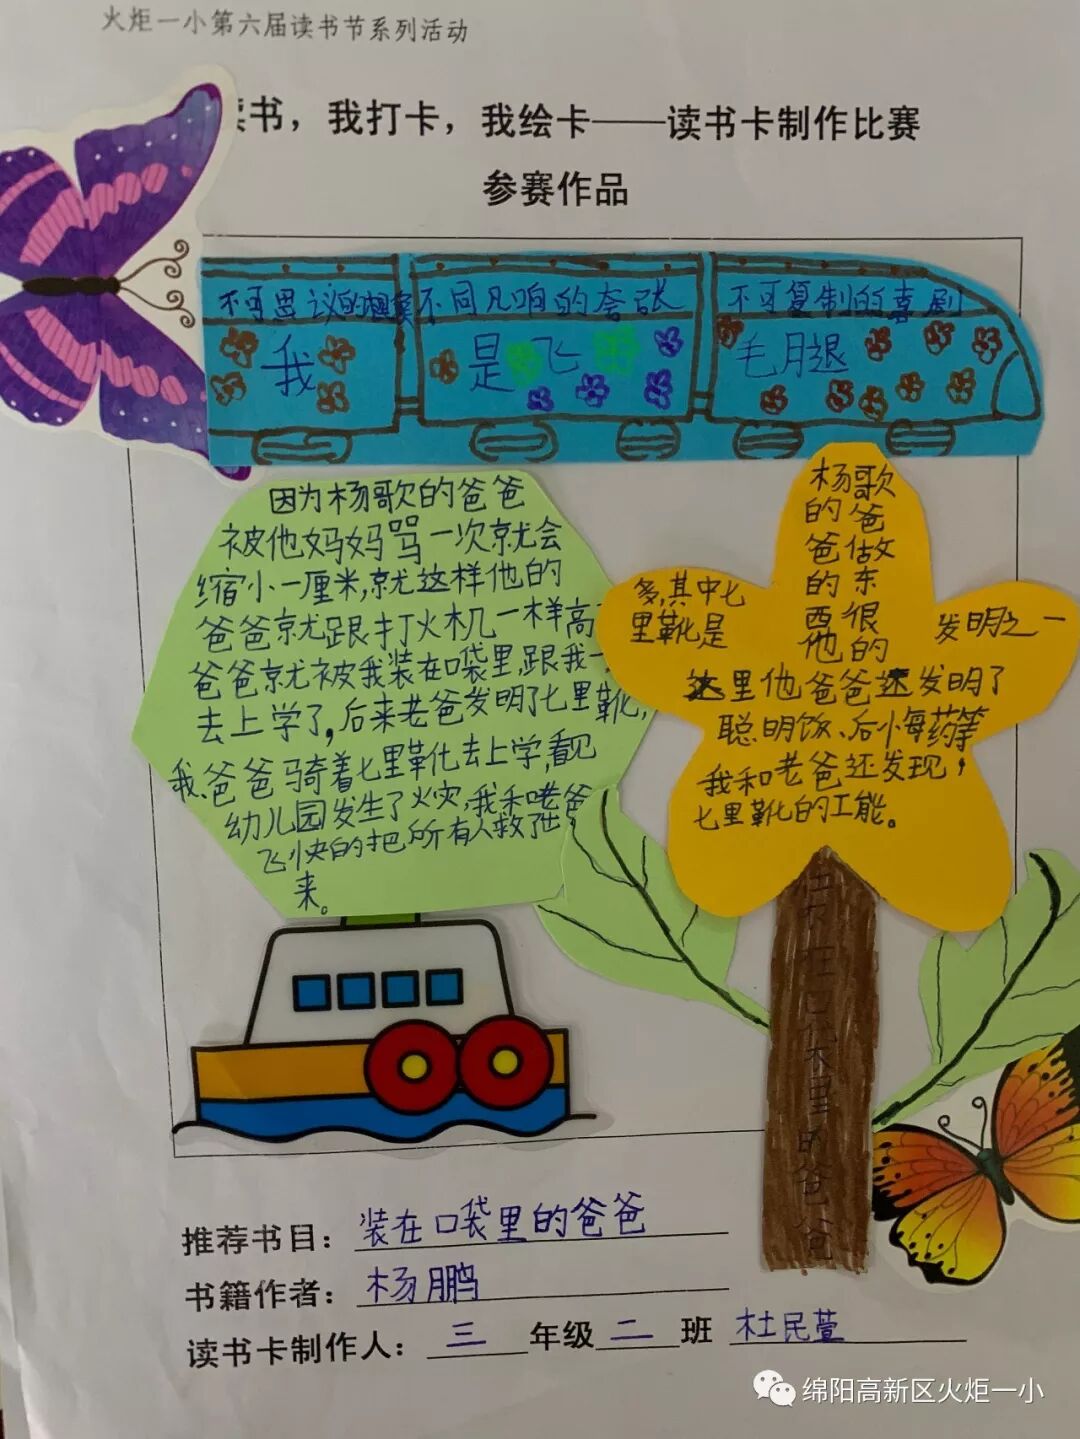 火炬一小第六届读书节系列活动
读书，我打卡，我绘卡——读书卡制作比赛
参赛作品
不可思议的想象 不同凡响的夸张 不可复制的喜剧
我 是飞 毛腿
因为杨歌的爸爸
被他妈妈骂一次就会
缩小一厘米,就这样他的
爸爸就跟打火机一样高
爸爸就被我装在口袋里,跟我一
去上学了,后来老爸发明了七里靴,
我爸爸骑着七里靴去上学,看见
幼儿园发生了火灾,我和老爸
飞快的把所有人救出
来。
杨歌
的爸
爸做
的东
西很
多,其中七
里靴是
他的
发明之一
这里他爸爸还发明了
聪明饭、后悔药等
我和老爸还发现,
七里靴的工能。
里的爸爸
推荐书目：装在口袋里的爸爸
书籍作者：杨鹏
读书卡制作人：三年级二班 杜民萱
绵阳高新区火炬一小